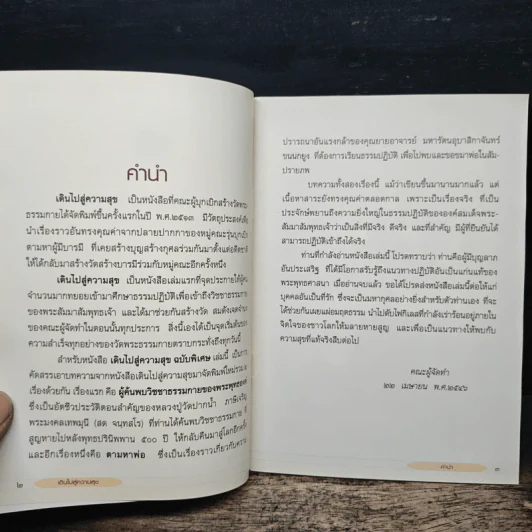 คำนำ
เดินไปสู่ความสุข เป็นหนังสือที่คณะผู้บุกเบิกสร้างวัดพระ
ธรรมกายได้จัดพิมพ์ขึ้นครั้งแรกในปี พ.ศ.๒๕๑๓ มีวัตถุประสงค์เพื่อ
นำเรื่องราวอันทรงคุณค่าจากปลายปากกาของหมู่คณะรุ่นบุกเบิก
ตามหาผู้มีบารมี ที่เคยสร้างบุญสร้างกุศลร่วมกันมาตั้งแต่อดีตชาติ
ให้ได้กลับมาสร้างวัดสร้างบารมีร่วมกับหมู่คณะอีกครั้งหนึ่ง
เดินไปสู่ความสุข เป็นหนังสือเล่มแรกที่จุดประกายให้ผู้คน
จำนวนมากทยอยเข้ามาศึกษาธรรมปฏิบัติเพื่อเข้าถึงวิชชาธรรมกาย
ของพระสัมมาสัมพุทธเจ้า และได้มาช่วยกันสร้างวัด สมดังเจตนา
ของคณะผู้จัดทำในตอนนั้นทุกประการ สิ่งนี้เองได้เป็นจุดเริ่มต้นของ
ความสำเร็จทุกอย่างของวัดพระธรรมกายตราบกระทั่งถึงทุกวันนี้
สำหรับหนังสือ เดินไปสู่ความสุข ฉบับพิเศษ เล่มนี้ เป็นการ
คัดสรรเอาบทความจากหนังสือเดินไปสู่ความสุขมาจัดพิมพ์ใหม่รวม ๒
เรื่องด้วยกัน เรื่องแรก คือ ผู้ค้นพบวิชชาธรรมกายของพระพุทธองค์
ซึ่งเป็นอัตชีวประวัติตอนสำคัญของหลวงปู่วัดปากน้ำ ภาษีเจริญ
พระมงคลเทพมุนี (สด จนฺทสโร) ที่ท่านได้ค้นพบวิชชาธรรมกาย ที่
สูญหายไปหลังพุทธปรินิพพาน ๕๐๐ ปี ให้กลับคืนมาสู่โลกอีกครั้ง
และอีกเรื่องหนึ่งคือ ตามหาพ่อ ซึ่งเป็นเรื่องราวเกี่ยวกับความ
๒ เดินไปสู่ความสุข
ปรารถนาอันแรงกล้าของคุณยายอาจารย์ มหารัตนอุบาสิกาจันทร์
ขนนกยูง ที่ต้องการเรียนธรรมปฏิบัติ เพื่อไปพบและขอขมาพ่อในสัม-
ปรายภพ
บทความทั้งสองเรื่องนี้ แม้ว่าเขียนขึ้นมานานมากแล้ว แต่
เนื้อหาสาระยังทรงคุณค่าตลอดกาล เพราะเป็นเรื่องจริง ที่เป็น
ประจักษ์พยานถึงความยิ่งใหญ่ในธรรมปฏิบัติขององค์สมเด็จพระ-
สัมมาสัมพุทธเจ้าว่าเป็นสิ่งที่มีจริง ดีจริง และที่สำคัญ มีผู้ที่ยืนยันได้
สามารถปฏิบัติเข้าถึงได้จริง
ท่านที่กำลังอ่านหนังสือเล่มนี้ โปรดทราบว่า ท่านคือผู้มีบุญลาภ
อันประเสริฐ ที่ได้มีโอกาสรับรู้ถึงแนวทางปฏิบัติอันเป็นแก่นแท้ของ
พระพุทธศาสนา เมื่ออ่านจบแล้ว ขอได้โปรดส่งหนังสือเล่มนี้ต่อให้แก่
บุคคลอันเป็นที่รัก ซึ่งจะเป็นมหากุศลอย่างยิ่งสำหรับตัวท่านเอง ที่จะ
ได้ช่วยกันเผยแผ่อมฤตธรรม นำไปดับไฟกิเลสที่กำลังเร่าร้อนอยู่ภายใน
จิตใจของชาวโลกให้มลายหายสูญ และเพื่อเป็นแนวทางให้พบกับ
ความสุขที่แท้จริงสืบต่อไป
คณะผู้จัดทำ
๒๒ เมษายน พ.ศ.๒๕๔๖
คำนำ ๓